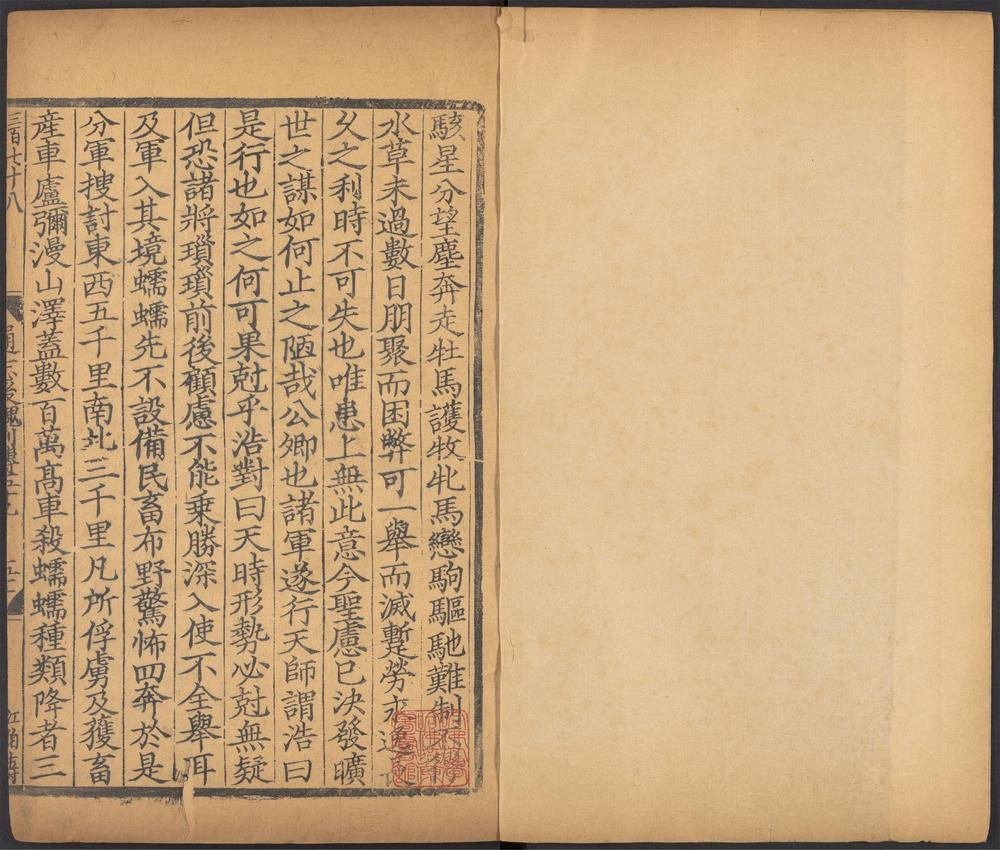 駭星分望塵奔走牡馬護牧牝馬戀駒驅馳難制不
水草未過數日朋聚而困弊可一舉而滅蹔勞永逸
乆之利時不可失也唯患上無此意今聖慮已決發曠
世之謀如何止之陋哉公卿也諸軍遂行天師謂浩曰
是行也如之何可果尅乎浩對曰天時形勢必尅無疑
但恐諸將瑣瑣前後顧慮不能乗勝深入使不全舉耳
及軍入其境蠕蠕先不設備民畜布野驚怖四奔於是
分軍搜討東西五千里南北三千里凡所俘虜及獲畜
産車廬彌漫山澤蓋數百萬髙車殺蠕蠕種類降者三
三百七十八